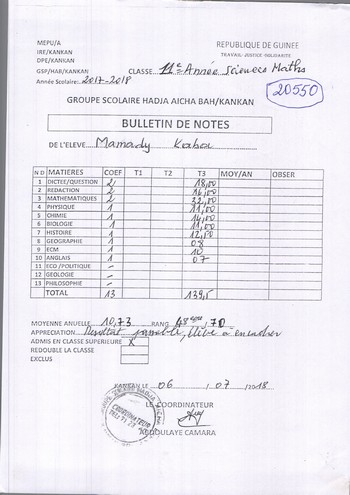 MEPU/A
IRE/KANKAN
DPE/KANKAN
GSP/HAB/KANKAN
Année Scolaire: 2017-2018
REPUBLIQUE DE GUINEE
TRAVAIL-JUSTICE-SOLIDARITE
CLASSE 11e Année Sciences Maths
20550
GROUPE SCOLAIRE HADJA AICHA BAH/KANKAN
BULLETIN DE NOTES
DE L'ELEVE Mamady Kaba
N D MATIERES COEF T1 T2 T3 MOY/AN OBSER
1 DICTEE/QUESTION 2 18,00
2 REDACTION 2 16,00
3 MATHEMATIQUES 2 22,00
4 PHYSIQUE 1 11,00
5 CHIMIE 1 14,00
6 BIOLOGIE 1 11,00
7 HISTOIRE 1 12,50
8 GEOGRAPHIE 1 08
9 ECM 1 10
10 ANGLAIS 1 07
11 ECO /POLITIQUE -
12 GEOLOGIE -
13 PHILOSOPHIE -
TOTAL 13 139,5
MOYENNE ANUELLE 10,73 RANG 48ème/70
APPRECIATION Résultat passable, élève à encadrer
ADMIS EN CLASSE SUPERIEURE X
REDOUBLE LA CLASSE
EXCLUS
KANKAN LE 06 / 07 /2018
LE COORDINATEUR
COORDINATEUR
ABDOULAYE CAMARA